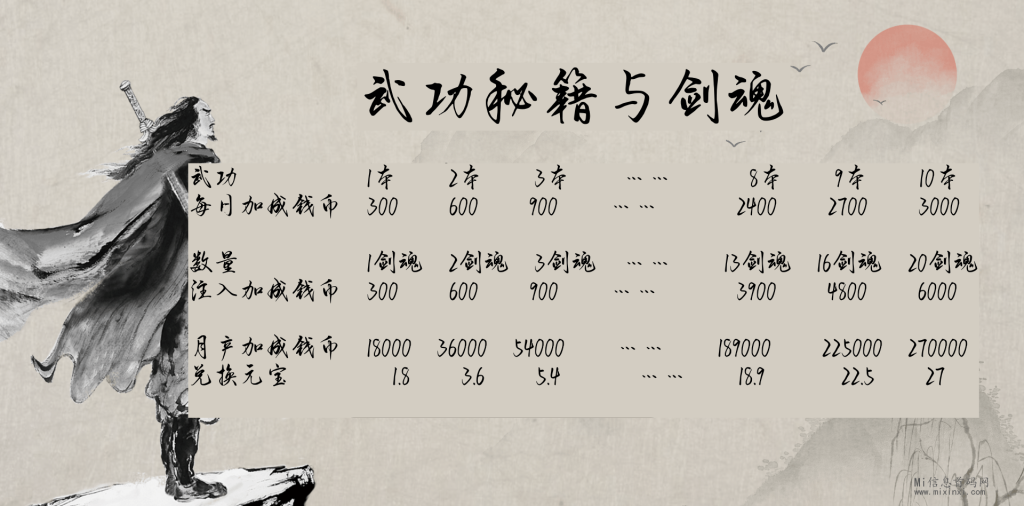 武功秘籍与剑魂
武功 1本 2本 3本 …… 8本 9本 10本
每月加成钱币 300 600 900 …… 2400 2700 3000
数量 1剑魂 2剑魂 3剑魂 …… 13剑魂 16剑魂 20剑魂
注入加成钱币 300 600 900 …… 3900 4800 6000
月产加成钱币 18000 36000 54000 …… 189000 225000 270000
兑换元宝 1.8 3.6 5.4 …… 18.9 22.5 27
Mi信息首码网
www.mixinxi.com